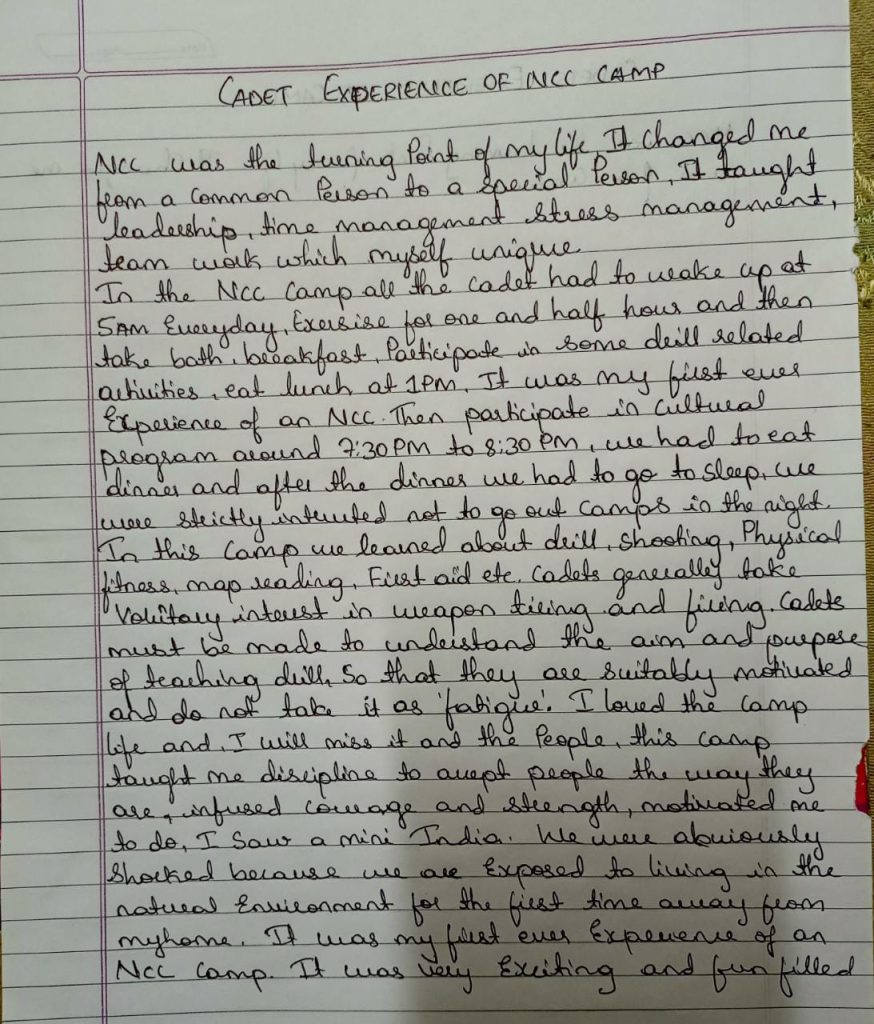 CADET EXPERIENCE OF NCC CAMP
NCC was the turning Point of my life, It changed me
from a common Person to a special Person, It taught
leadership, time management stress management,
team work which myself unique.
In the NCC Camp all the cadet had to wake up at
5AM Everyday, Exersise for one and half hour and then
take bath, breakfast, Participate in some drill related
activities, eat lunch at 1PM, It was my first ever
Experience of an NCC. Then participate in Cultural
program around 7:30 PM to 8:30 PM, we had to eat
dinner and after the dinner we had to go to sleep, we
were strictly not to go out camps in the night.
In this Camp we learned about drill, Shooting, Physical
fitness, map reading, First aid etc. Cadets generally take
interest in weapon and firing. Cadets
must be made to understand the aim and purpose
of teaching drill, So that they are suitably motivated
and do not take it as 'fatigue'. I loved the camp
life and, I will miss it and the People, this camp
taught me discipline to accept people the way they
are, infused courage and strength, motivated me
to do, I Saw a mini India. We were abviously
Shocked because we are Exposed to living in the
natural Environment for the first time away from
myhome. It was my first ever Experience of an
NCC Camp. It was very Exciting and fun filled